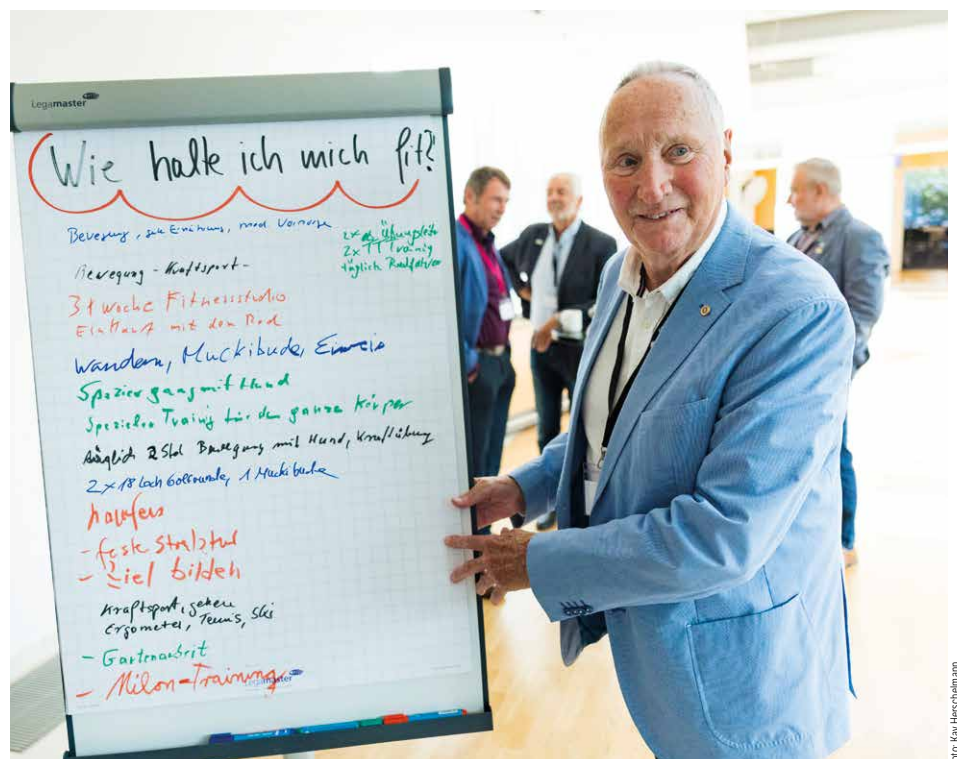 Legamaster
Wie halte ich mich fit?
Bewegung, gute Ernährung, med Vorsorge
2x Übungsleiter
2x TT Traing
täglich Radfahren
Bewegung - Kraftsport -
3 1 Woche Fitnessstudio
Einkauf mit dem Rad
Wandern, Muckibude, Eiweis
Spaziergang mit Hund
Spezielles Training für den ganze Körper
täglich 2 Std Bewegung mit Hund, Kraftübung
2 x 18 Loch Golfrunde, 1 Muckibude
- feste Struktur
- Ziel bilden
Kraftsport, gehen
Ergometer, Tennis, Ski
- Gartenarbeit
- Milon-Training
Legamaster
Foto: Kay Herschelmann